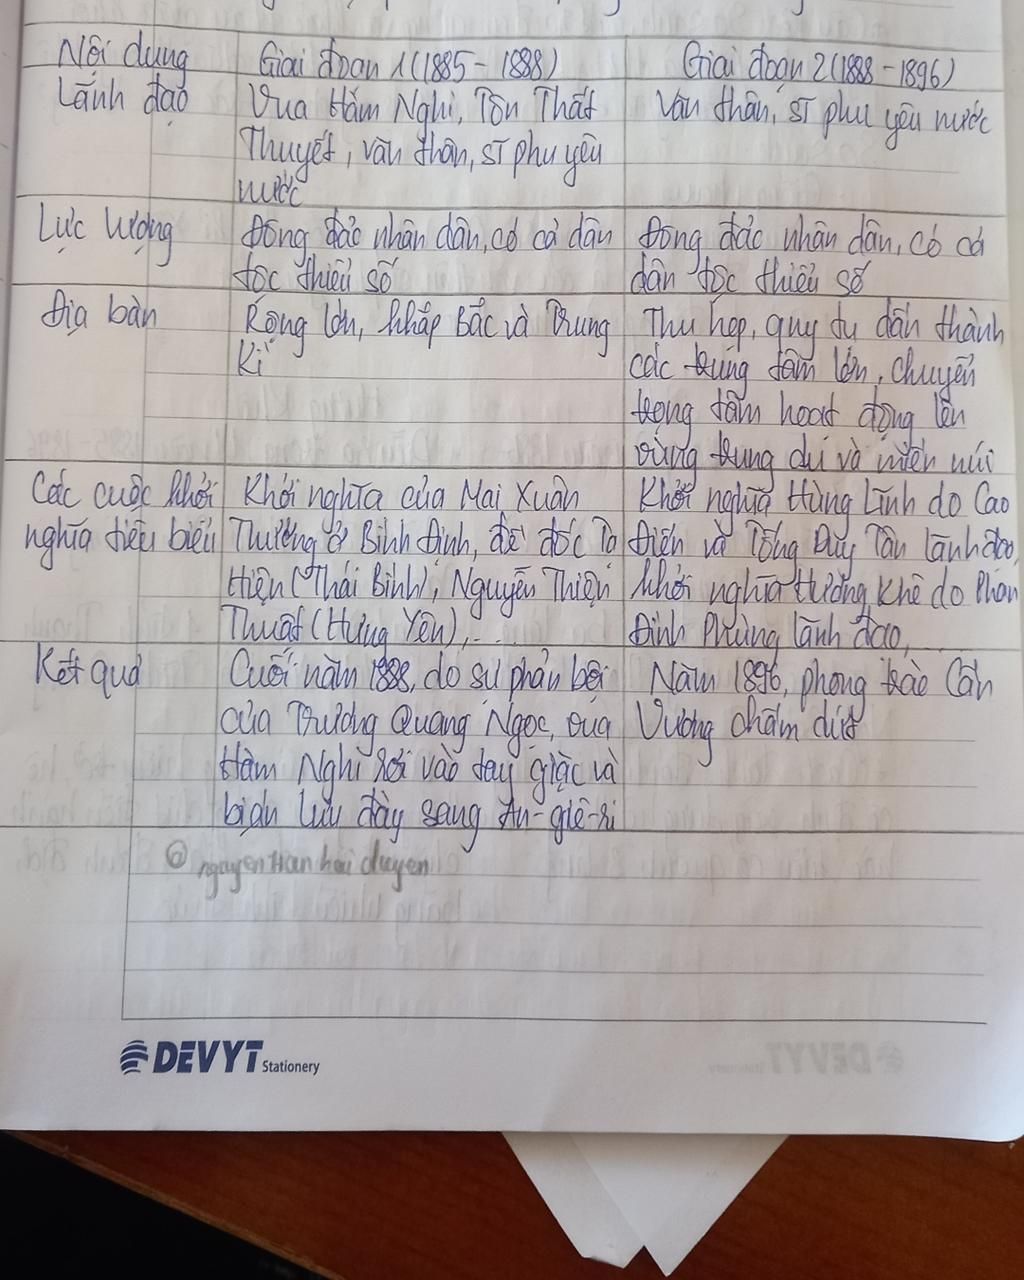 Nội dung
Giai đoạn 1 (1885 - 1888)
Giai đoạn 2 (1888 - 1896)
Lãnh đạo
Vua Hàm Nghi, Tôn Thất
Thuyết, văn thân, sĩ phu yêu
nước
Văn thân, sĩ phu yêu nước
Lực lượng
Đông đảo nhân dân, có cả dân
tộc thiểu số
Đông đảo nhân dân, có cả
dân tộc thiểu số
Địa bàn
Rộng lớn, khắp Bắc và Trung
Kì
Thu hẹp, quy tụ dần thành
các trung tâm lớn, chuyển
trọng tâm hoạt động lên
vùng trung du và miền núi
Các cuộc khởi
nghĩa tiêu biểu
Khởi nghĩa của Mai Xuân
Thưởng ở Bình Định, đề đốc Tạ
Hiện (Thái Bình), Nguyễn Thiện
Thuật (Hưng Yên),...
Khởi nghĩa Hùng Lĩnh do Cao
Điển và Tống Duy Tân lãnh đạo,
khởi nghĩa Hương Khê do Phan
Đình Phùng lãnh đạo,...
Kết quả
Cuối năm 1888, do sự phản bội
của Trương Quang Ngọc, vua
Hàm Nghi rơi vào tay giặc và
bị lưu đày sang An-giê-ri
Năm 1896, phong trào Cần
Vương chấm dứt
DEVYT Stationery